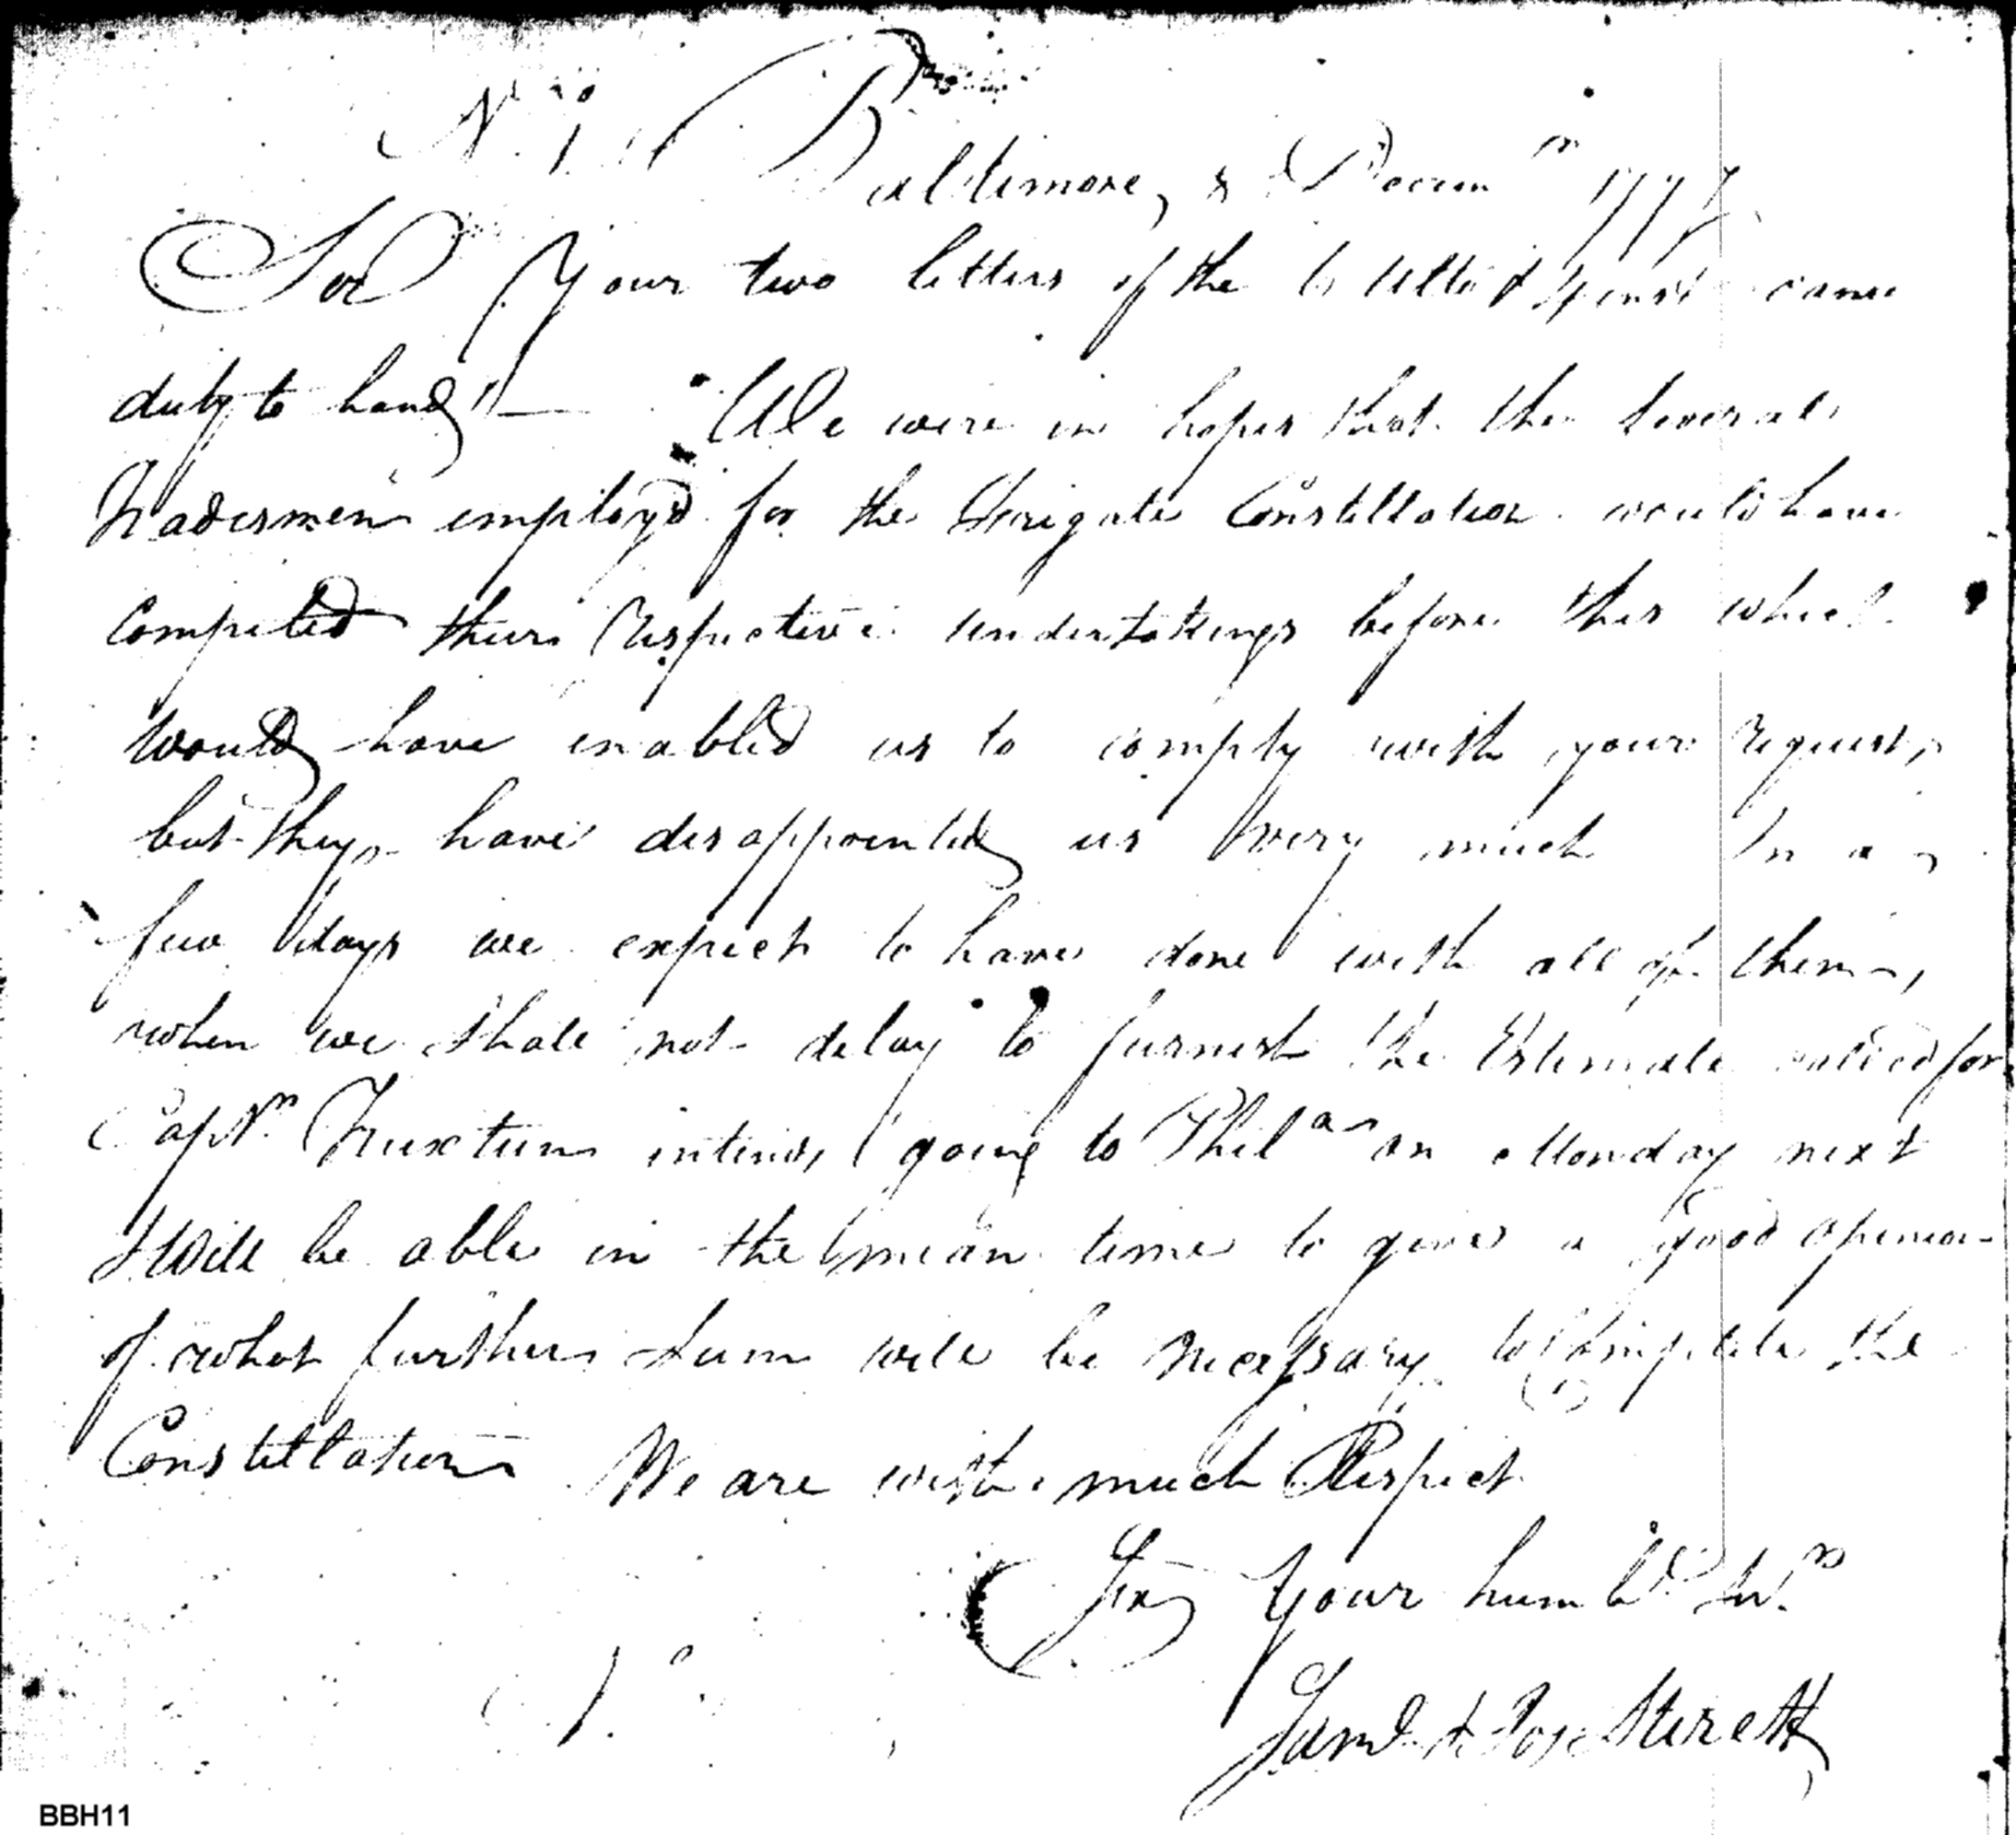 No. 1
Baltimore, 8 Decem.r 1797
Sir Your two letters of the inst came
duly to hand — We were in hopes that the several
Tradesmen employ'd for the Frigate Constellation would have
Completed their Respective undertakings before this which
would have enabled us to comply with your request,
but they have disappointed us very much In a
few days we expect to have done with all of them,
when we shall not delay to furnish the Estimate called for
Capt.n Truxtun intends going to Phil.a on Monday next
& Will be able in the mean time to give a good opinion
of what further Sum will be necessary to Compleat the
Constellation We are with much Respect
Sir Your hum.bl Ser.ts
Sam.l & Jos. Sterett
BBH11